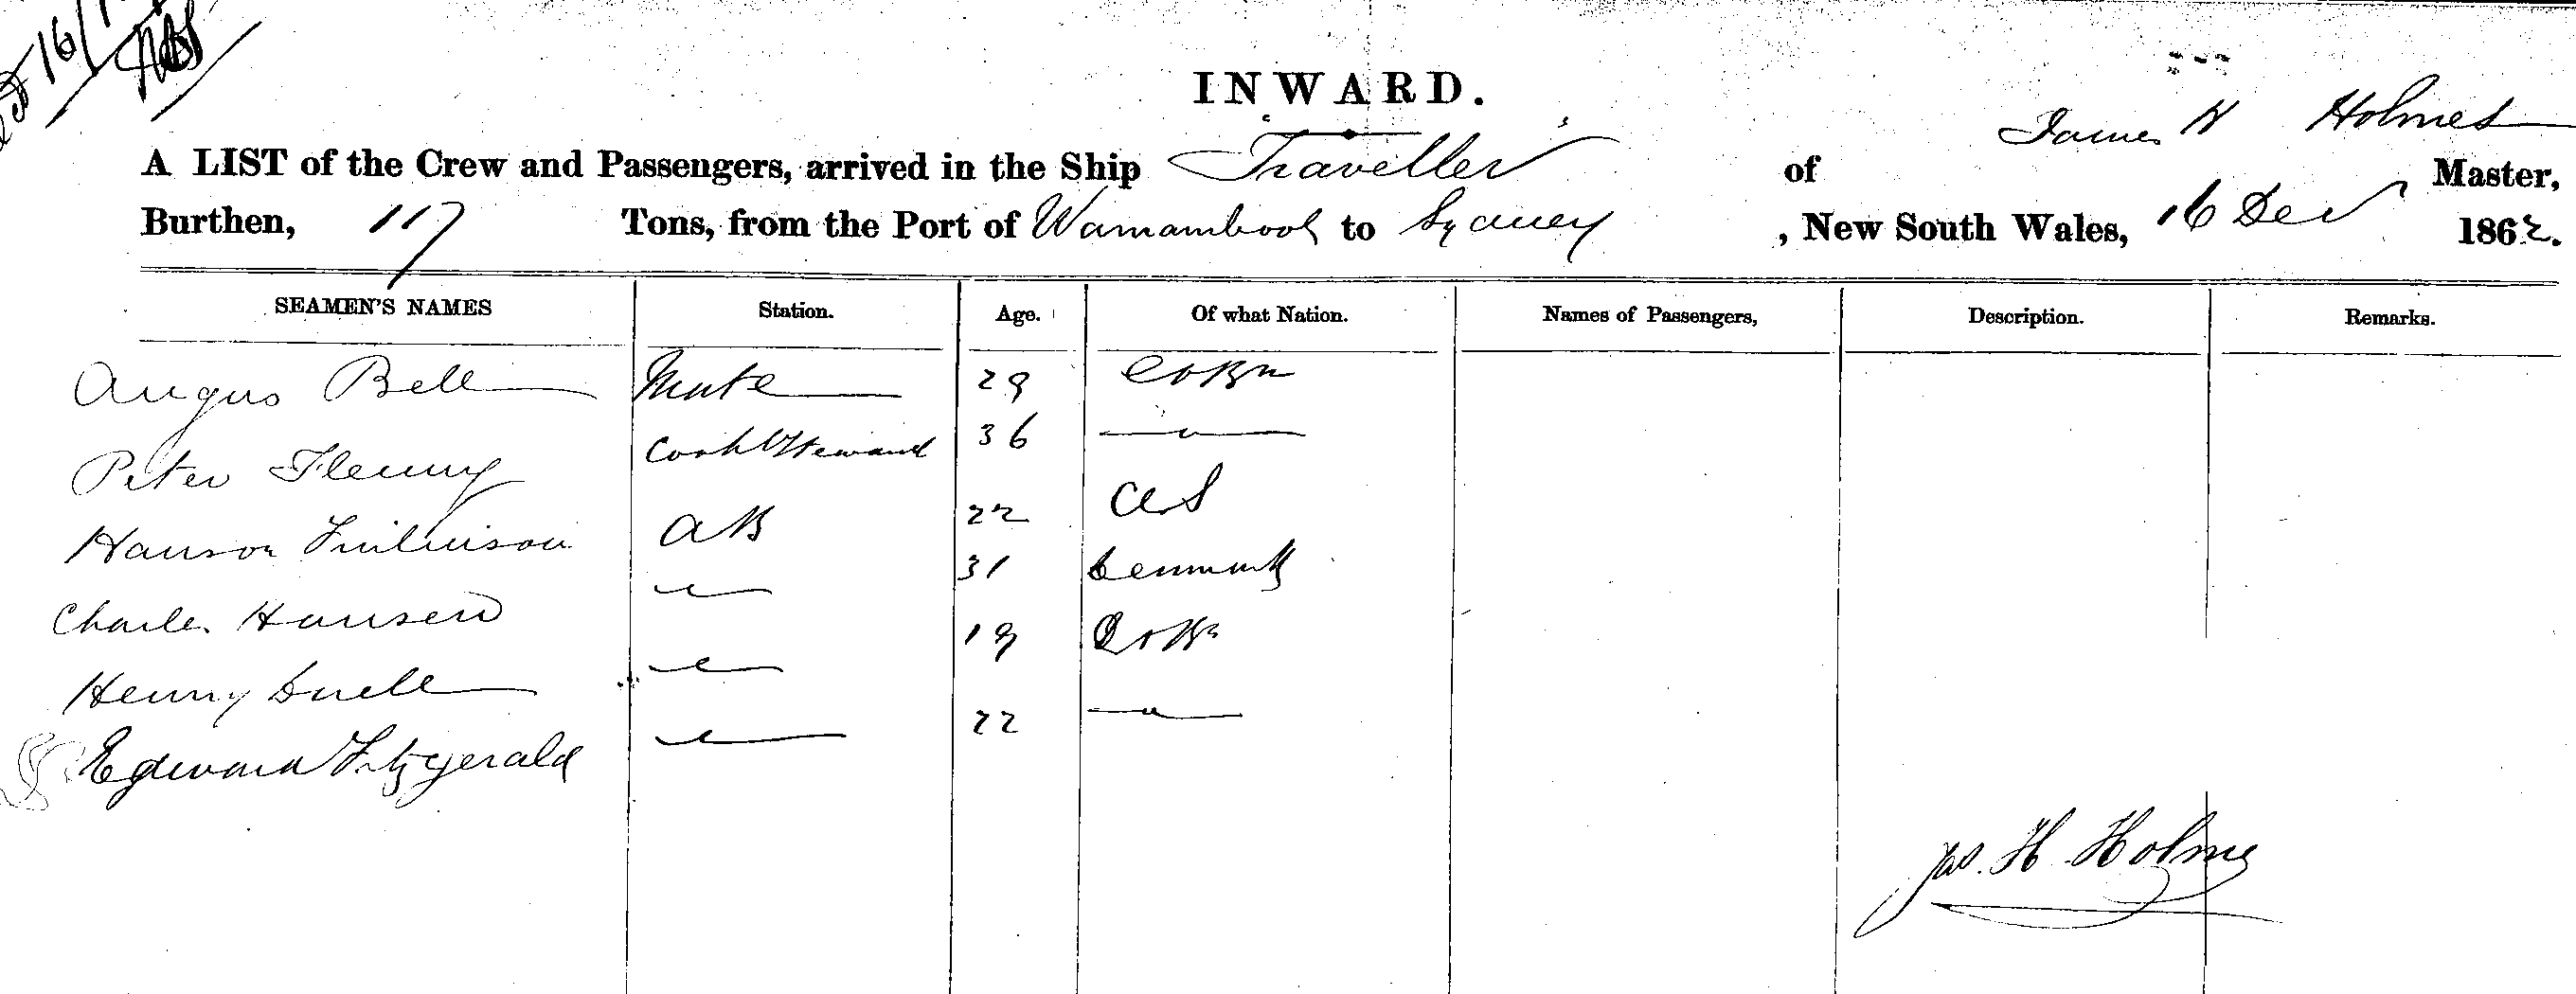 16/
INWARD.
James H Holmes
A LIST of the Crew and Passengers, arrived in the Ship Traveller of Master,
Burthen, 117 Tons, from the Port of Warnambool to Sydney , New South Wales, 16 Dec 1862.
SEAMEN'S NAMES Station. Age. Of what Nation. Names of Passengers, Description. Remarks.
Angus Bell Mate 29
Peter Cook & Steward 36 — " —
Hanson AB 22
Charles Hansen — " — 31 Denmark
Henry — " — 19
Edward Fitzgerald — " — 22 — " —
Jas. H Holmes